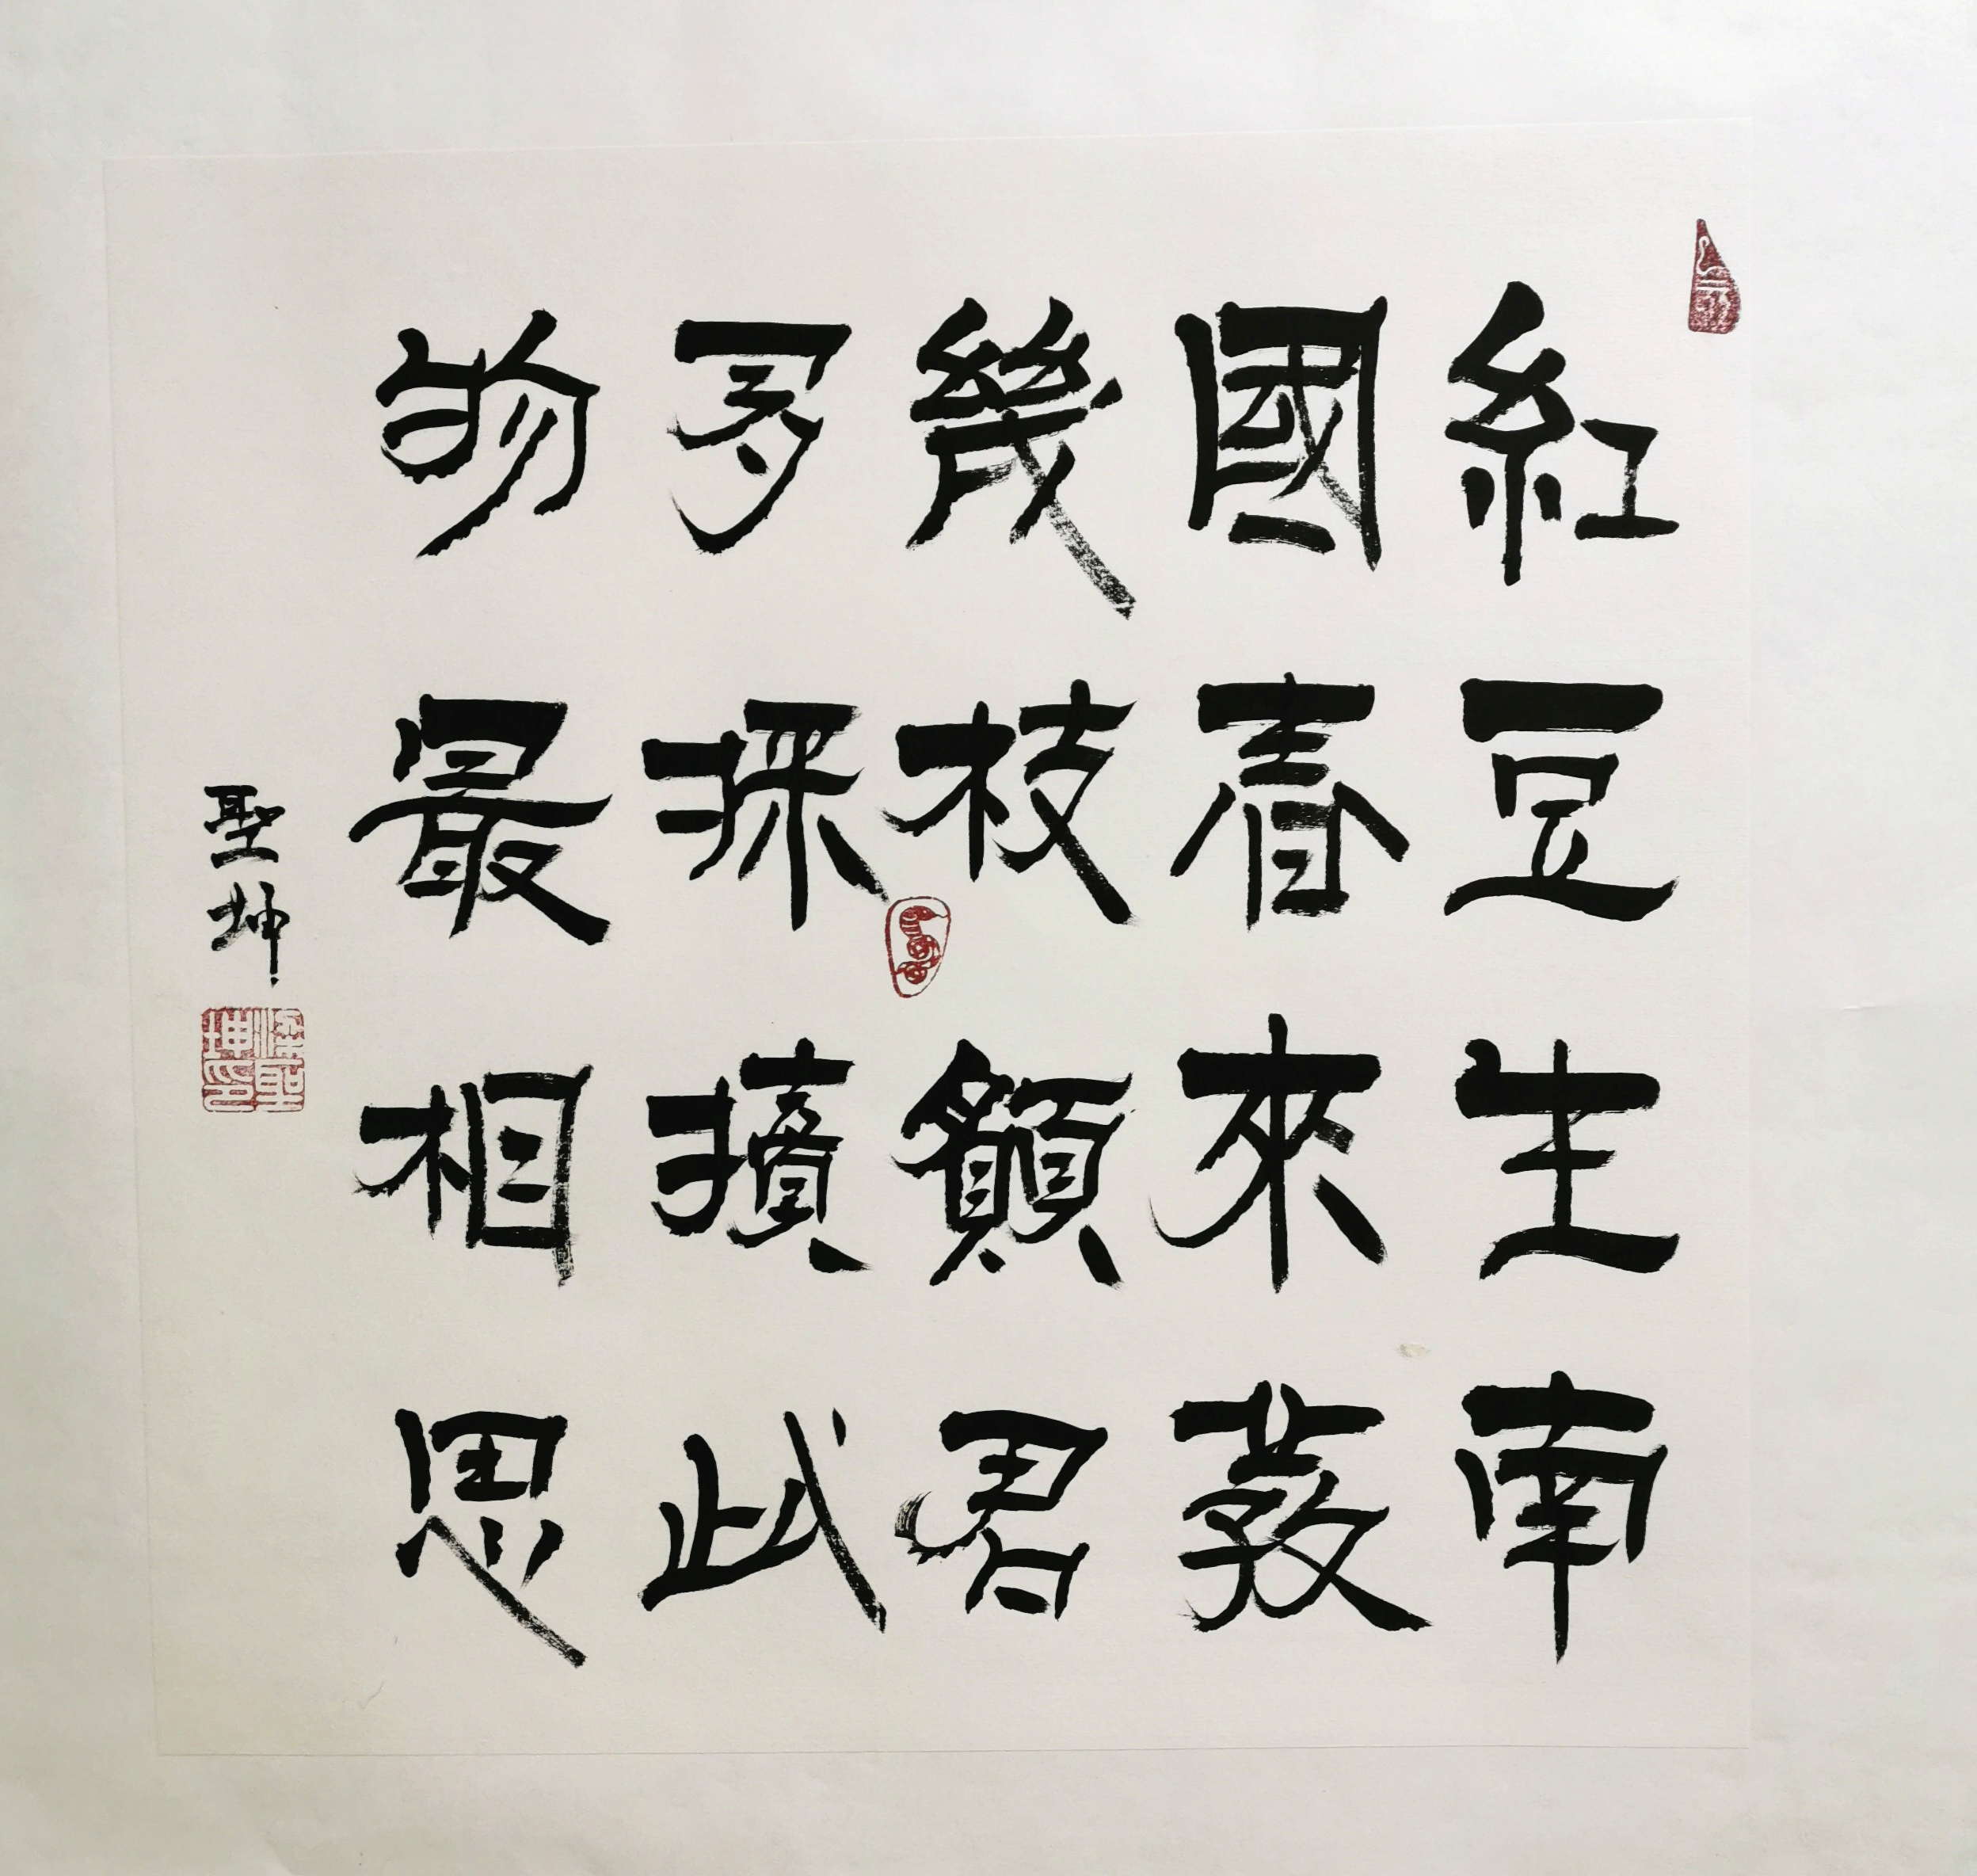 紅豆生南
國春來發
幾枝願君
多採擷此
物最相思
聖坤
梁聖坤印